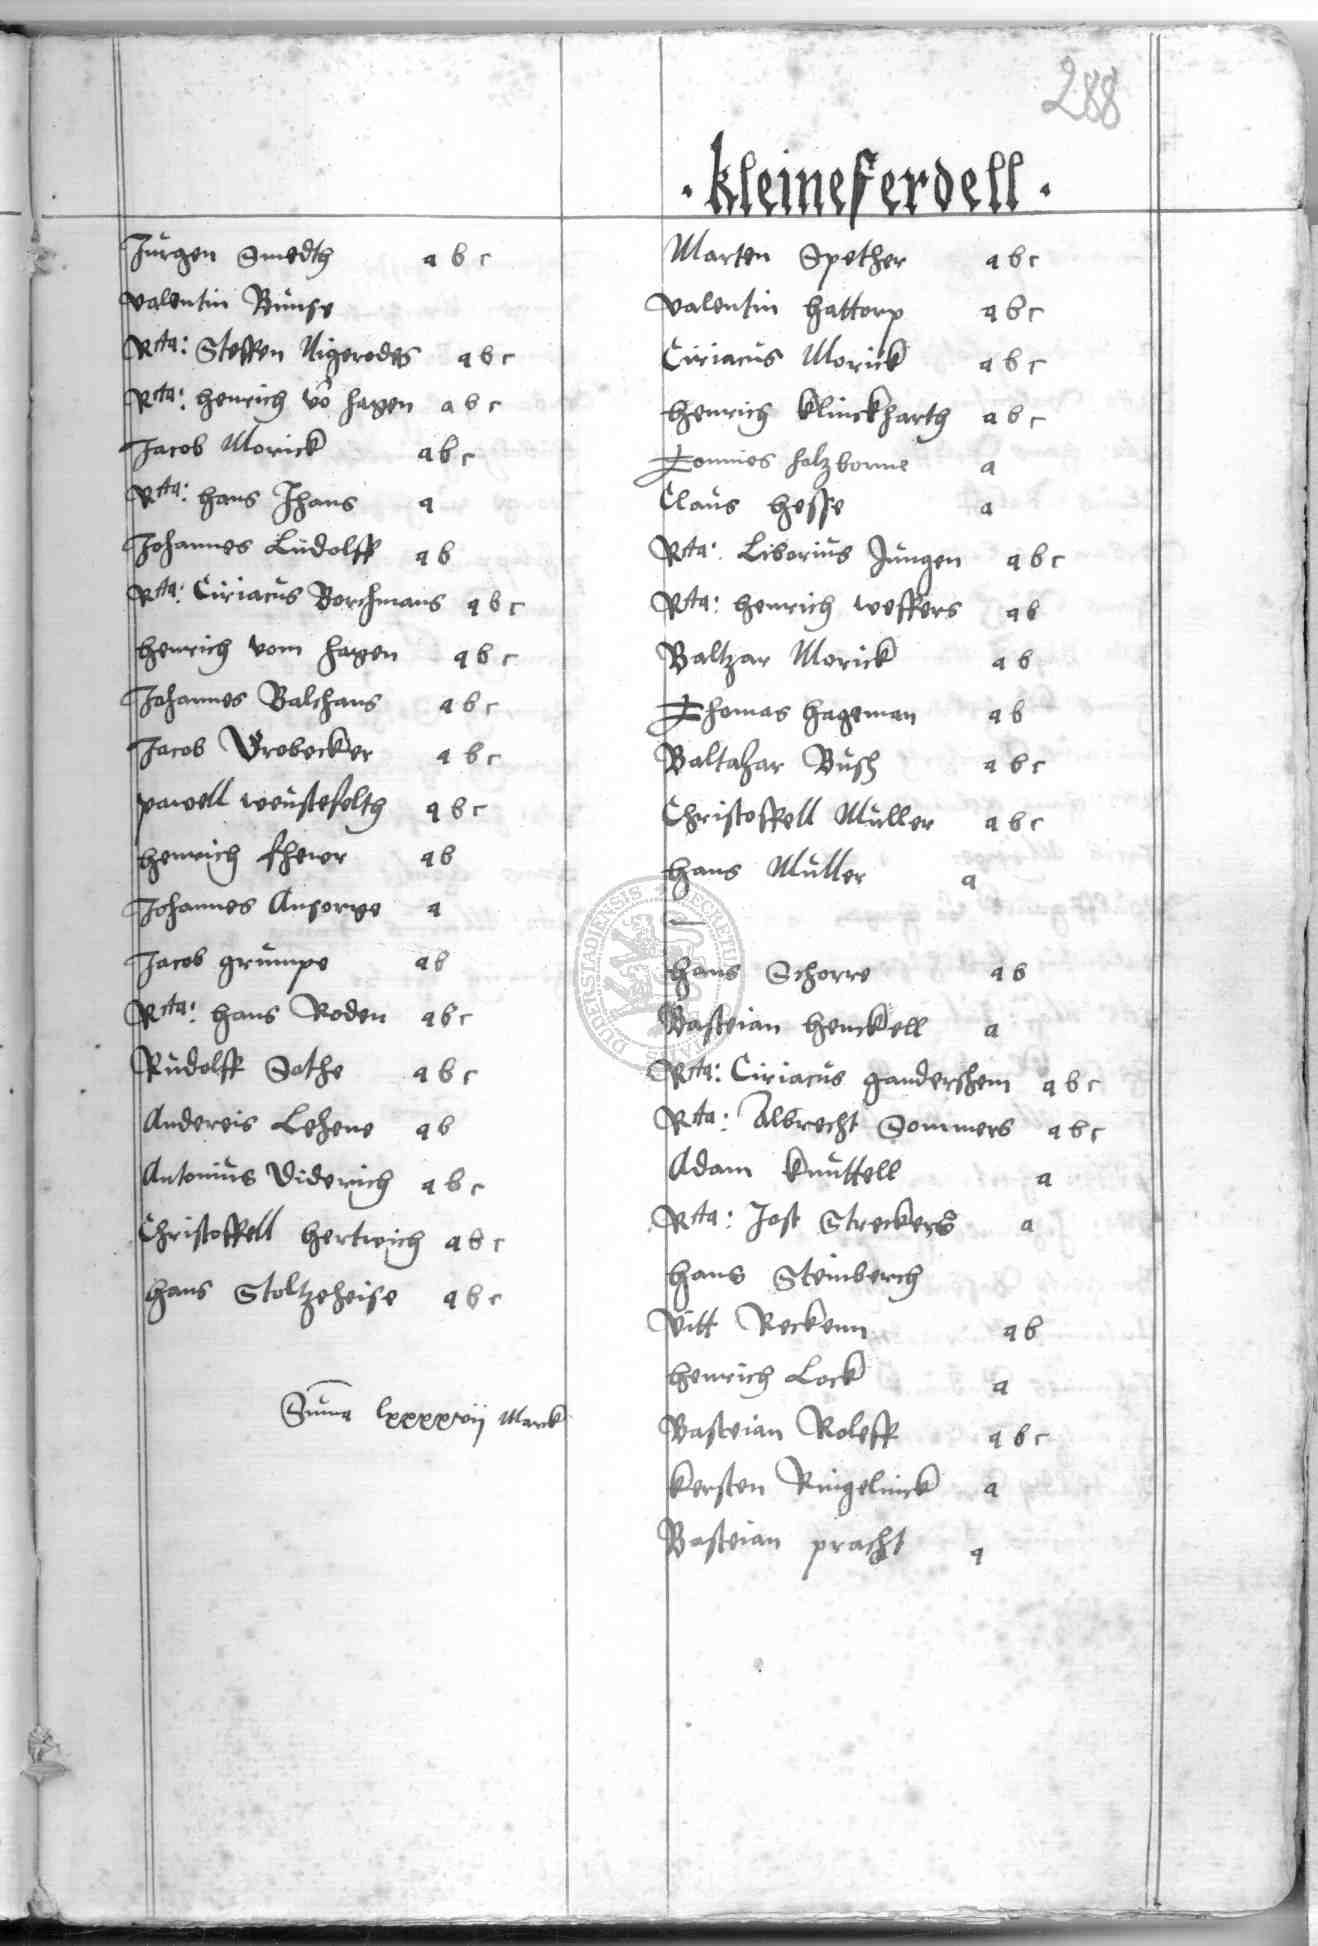 288
· kleineferdell ·
Jurgen Smedth a b c
Valentin Bunse
Rcta: Steffen Nigerodes a b c
Rcta: Henrich vo Hagen a b c
Jacob Morick a b c
Rcta: Hans Jhans a
Johannes Ludolff a b
Rcta: Ciriacus Borchmans a b c
Henrich vom Hagen a b c
Johannes Balchans a b c
Jacob Vrobecker a b c
Pawell Weustefelth a b c
Henrich a b
Johannes Ansorge a
Jacob Grumpe a b
Rcta: Hans Roden a b c
Rudolff Sothe a b c
Andereis Lehene a b
Antonius Diderich a b c
Christoffell Hertwich a b c
Hans Stoltzeheise a b c
Suma lxxxxvij Marck
Marten Spether a b c
Valentin Hattorp a b c
Ciriacus Morick a b c
Henrich Klinckharth a b c
Tonnies Salzborne a
Claus Hesse a
Rcta: Liborius Jungen a b c
Rcta: Henrich Weffers a b
Baltzar Morick a b
Thomas Hageman a b
Baltasar Bush a b c
Christoffell Muller a b c
Hans Muller a
—
Hans Schorre a b
Basteian Henckell a
Rcta: Ciriacus Gandershem a b c
Rcta: Albrecht Sommers a b c
Adam Knuttell a
Rcta: Jost Streckers a
Hans Steinberch
Vitt Reckenn a b
Henrich Lock a
Basteian Roleff a b c
Kersten Ringelinck a
Basteian Pracht a